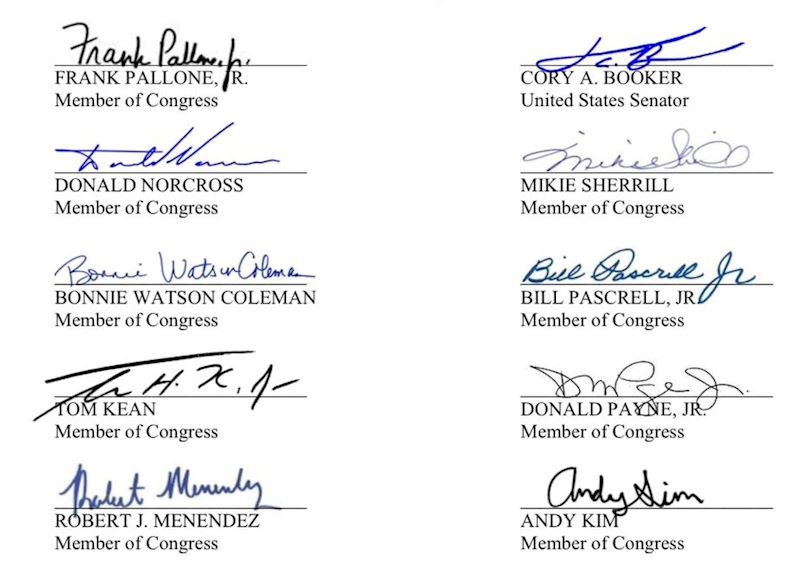 Frank Pallone, Jr.
FRANK PALLONE, JR.
Member of Congress
CORY A. BOOKER
United States Senator
Donald Norcross
DONALD NORCROSS
Member of Congress
Mikie Sherrill
MIKIE SHERRILL
Member of Congress
Bonnie Watson Coleman
BONNIE WATSON COLEMAN
Member of Congress
Bill Pascrell Jr
BILL PASCRELL, JR.
Member of Congress
TOM KEAN
Member of Congress
DONALD PAYNE, JR.
Member of Congress
Robert Menendez
ROBERT J. MENENDEZ
Member of Congress
Andy Kim
ANDY KIM
Member of Congress